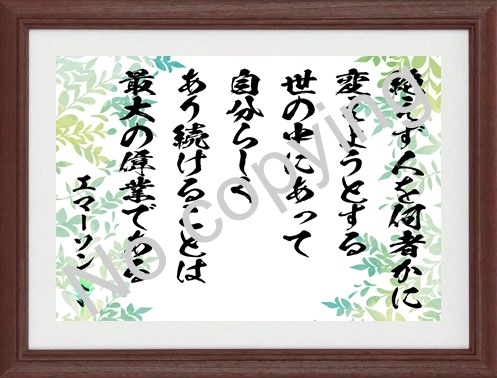 絶えず人を何者かに
変えようとする
世の中にあって
自分らしく
あり続けることは
最大の偉業である
エマーソン
No copying